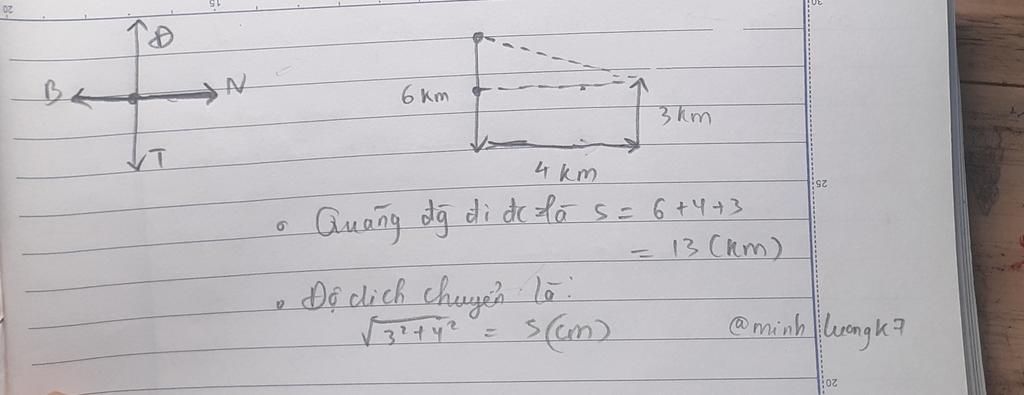 Đ
B N
T
6 km
3 km
4 km
Quãng đg đi đc là s = 6+4+3
= 13 (km)
Độ dịch chuyển là:
√3²+4² = 5(cm)
@minhluongk7
20
15
30
25
20